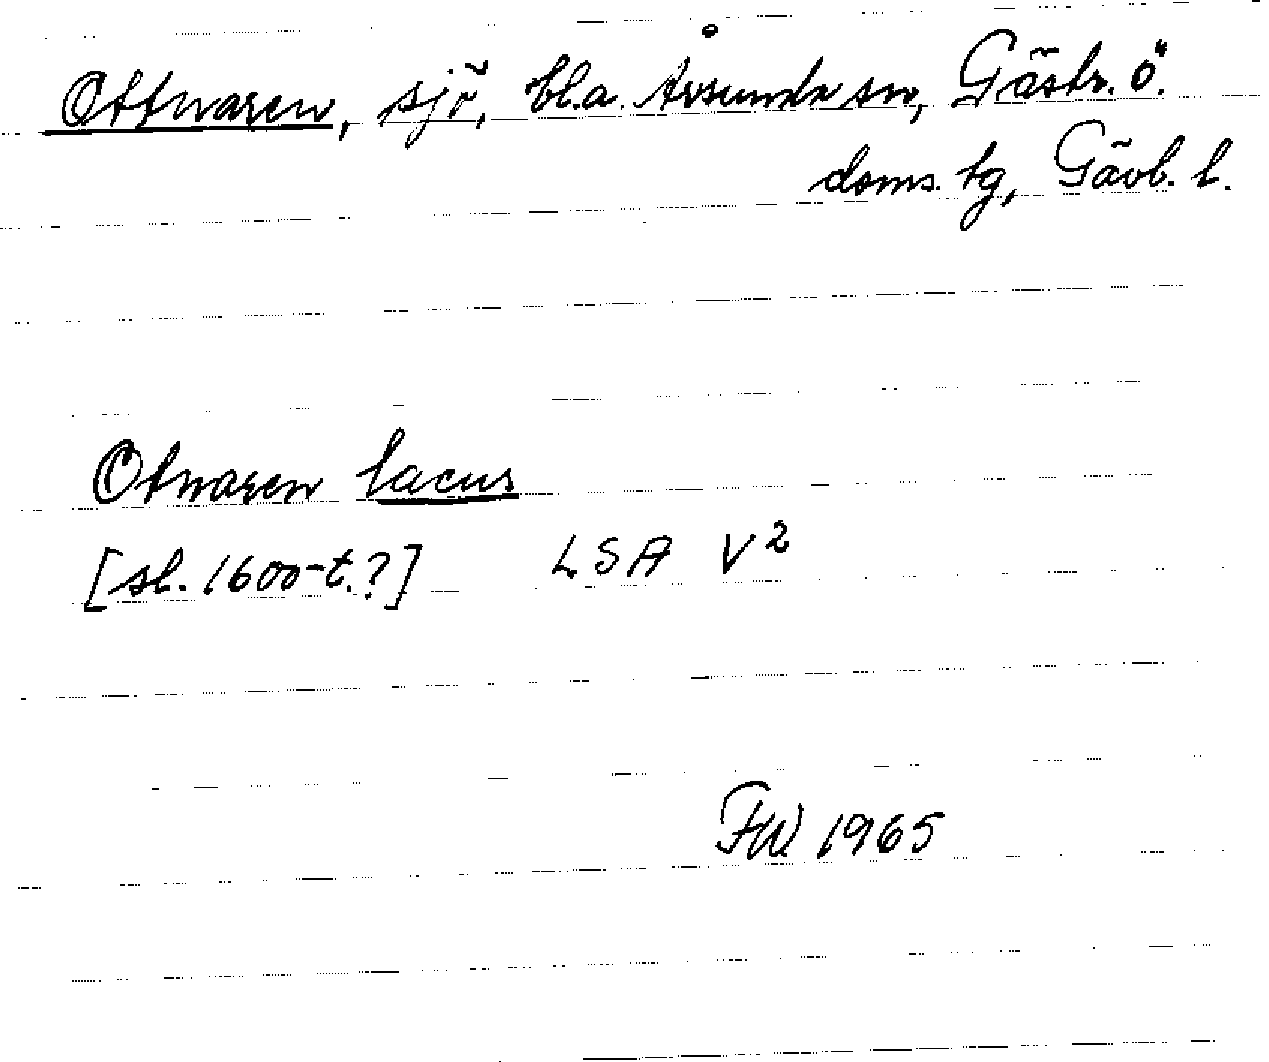 Ottnaren, sjö, bl.a. Årsunda sn, Gästr. ö.
doms. tg, Gävl. l.
Otnaren lacus
[sl. 1600-t.?] LSA V²
FW 1965